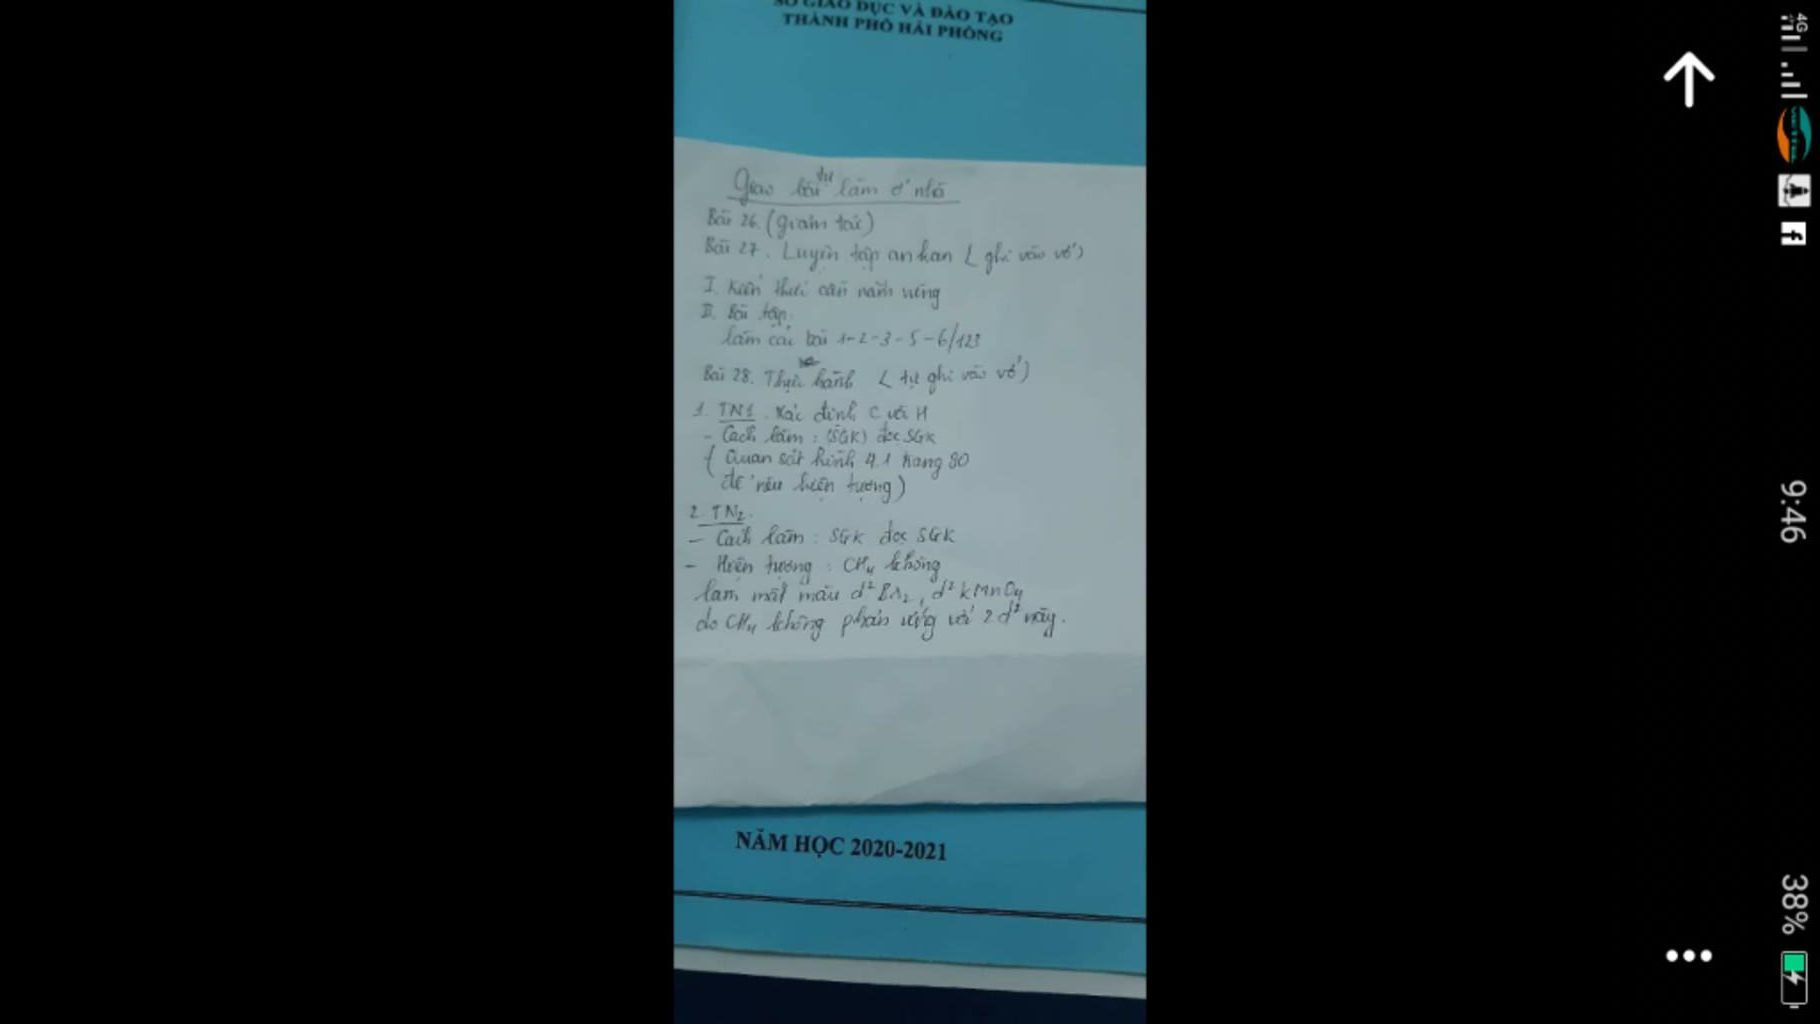 SỞ GIÁO DỤC VÀ ĐÀO TẠO
THÀNH PHỐ HẢI PHÒNG
Giao bài tự làm ở nhà
Bài 26. (giảm tải)
Bài 27. Luyện tập ankan ( ghi vào vở)
I. Kiến thức cần nắm vững
II. Bài tập
làm các bài 1-2-3-5-6/123
Bài 28. Thực hành ( tự ghi vào vở)
1. TN1. Xác định C với H
- Cách làm : (SGK) đọc SGK
( Quan sát hình 4.1 trang 90
để nêu hiện tượng)
2. TN2.
- Cách làm : SGK đọc SGK
- Hiện tượng : CH4 không
làm mất màu d² Br2, d² KMnO4
do CH4 không phản ứng với 2 d² này.
NĂM HỌC 2020-2021
4G
9:46
38%